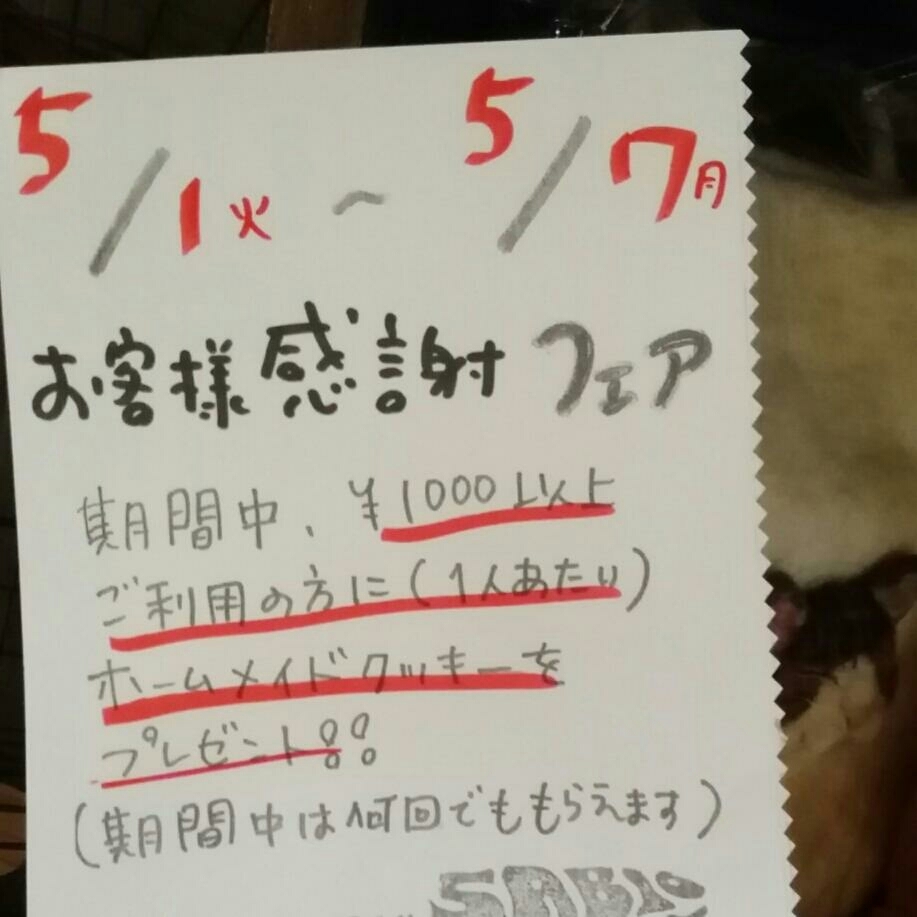 5/1火 〜 5/7月
お客様感謝フェア
期間中、¥1000以上
ご利用の方に(1人あたり)
ホームメイドクッキーを
プレゼント!!
(期間中は何回でももらえます)